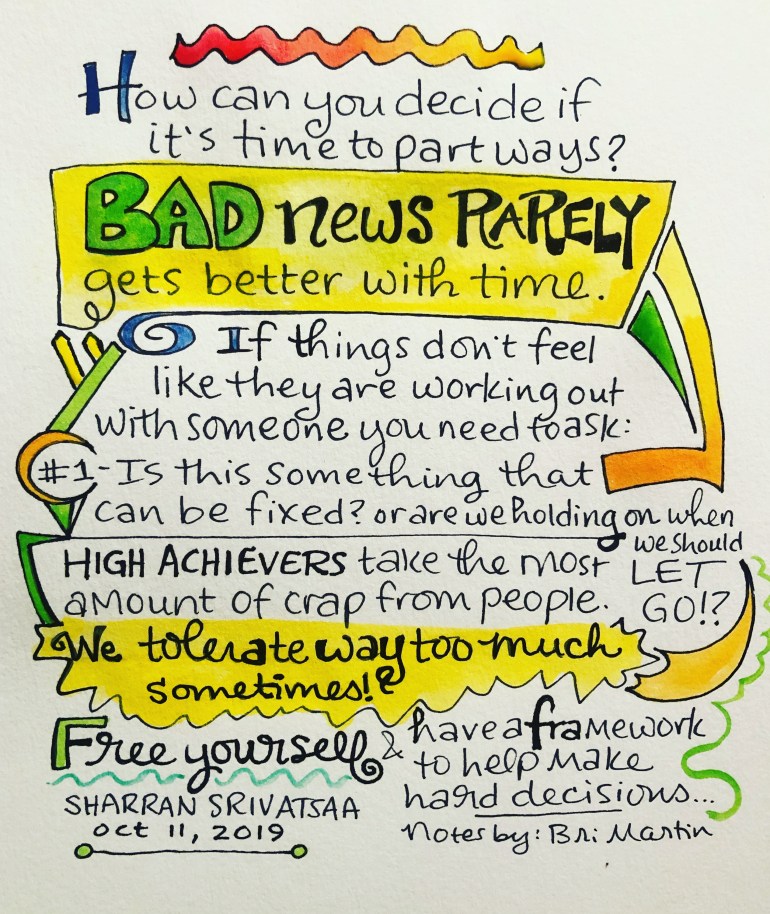 How can you decide if
it's time to part ways?
BAD news RARELY
gets better with time.
If things don't feel
like they are working out
with someone you need to ask:
#1 - Is this something that
can be fixed? or are we holding on when
we should
LET
GO!?
HIGH ACHIEVERS take the most
amount of crap from people.
We tolerate way too much
sometimes!?
Free yourself &
have a framework
to help make
hard decisions...
SHARRAN SRIVATSAA
Oct 11, 2019
Notes by: Bri Martin